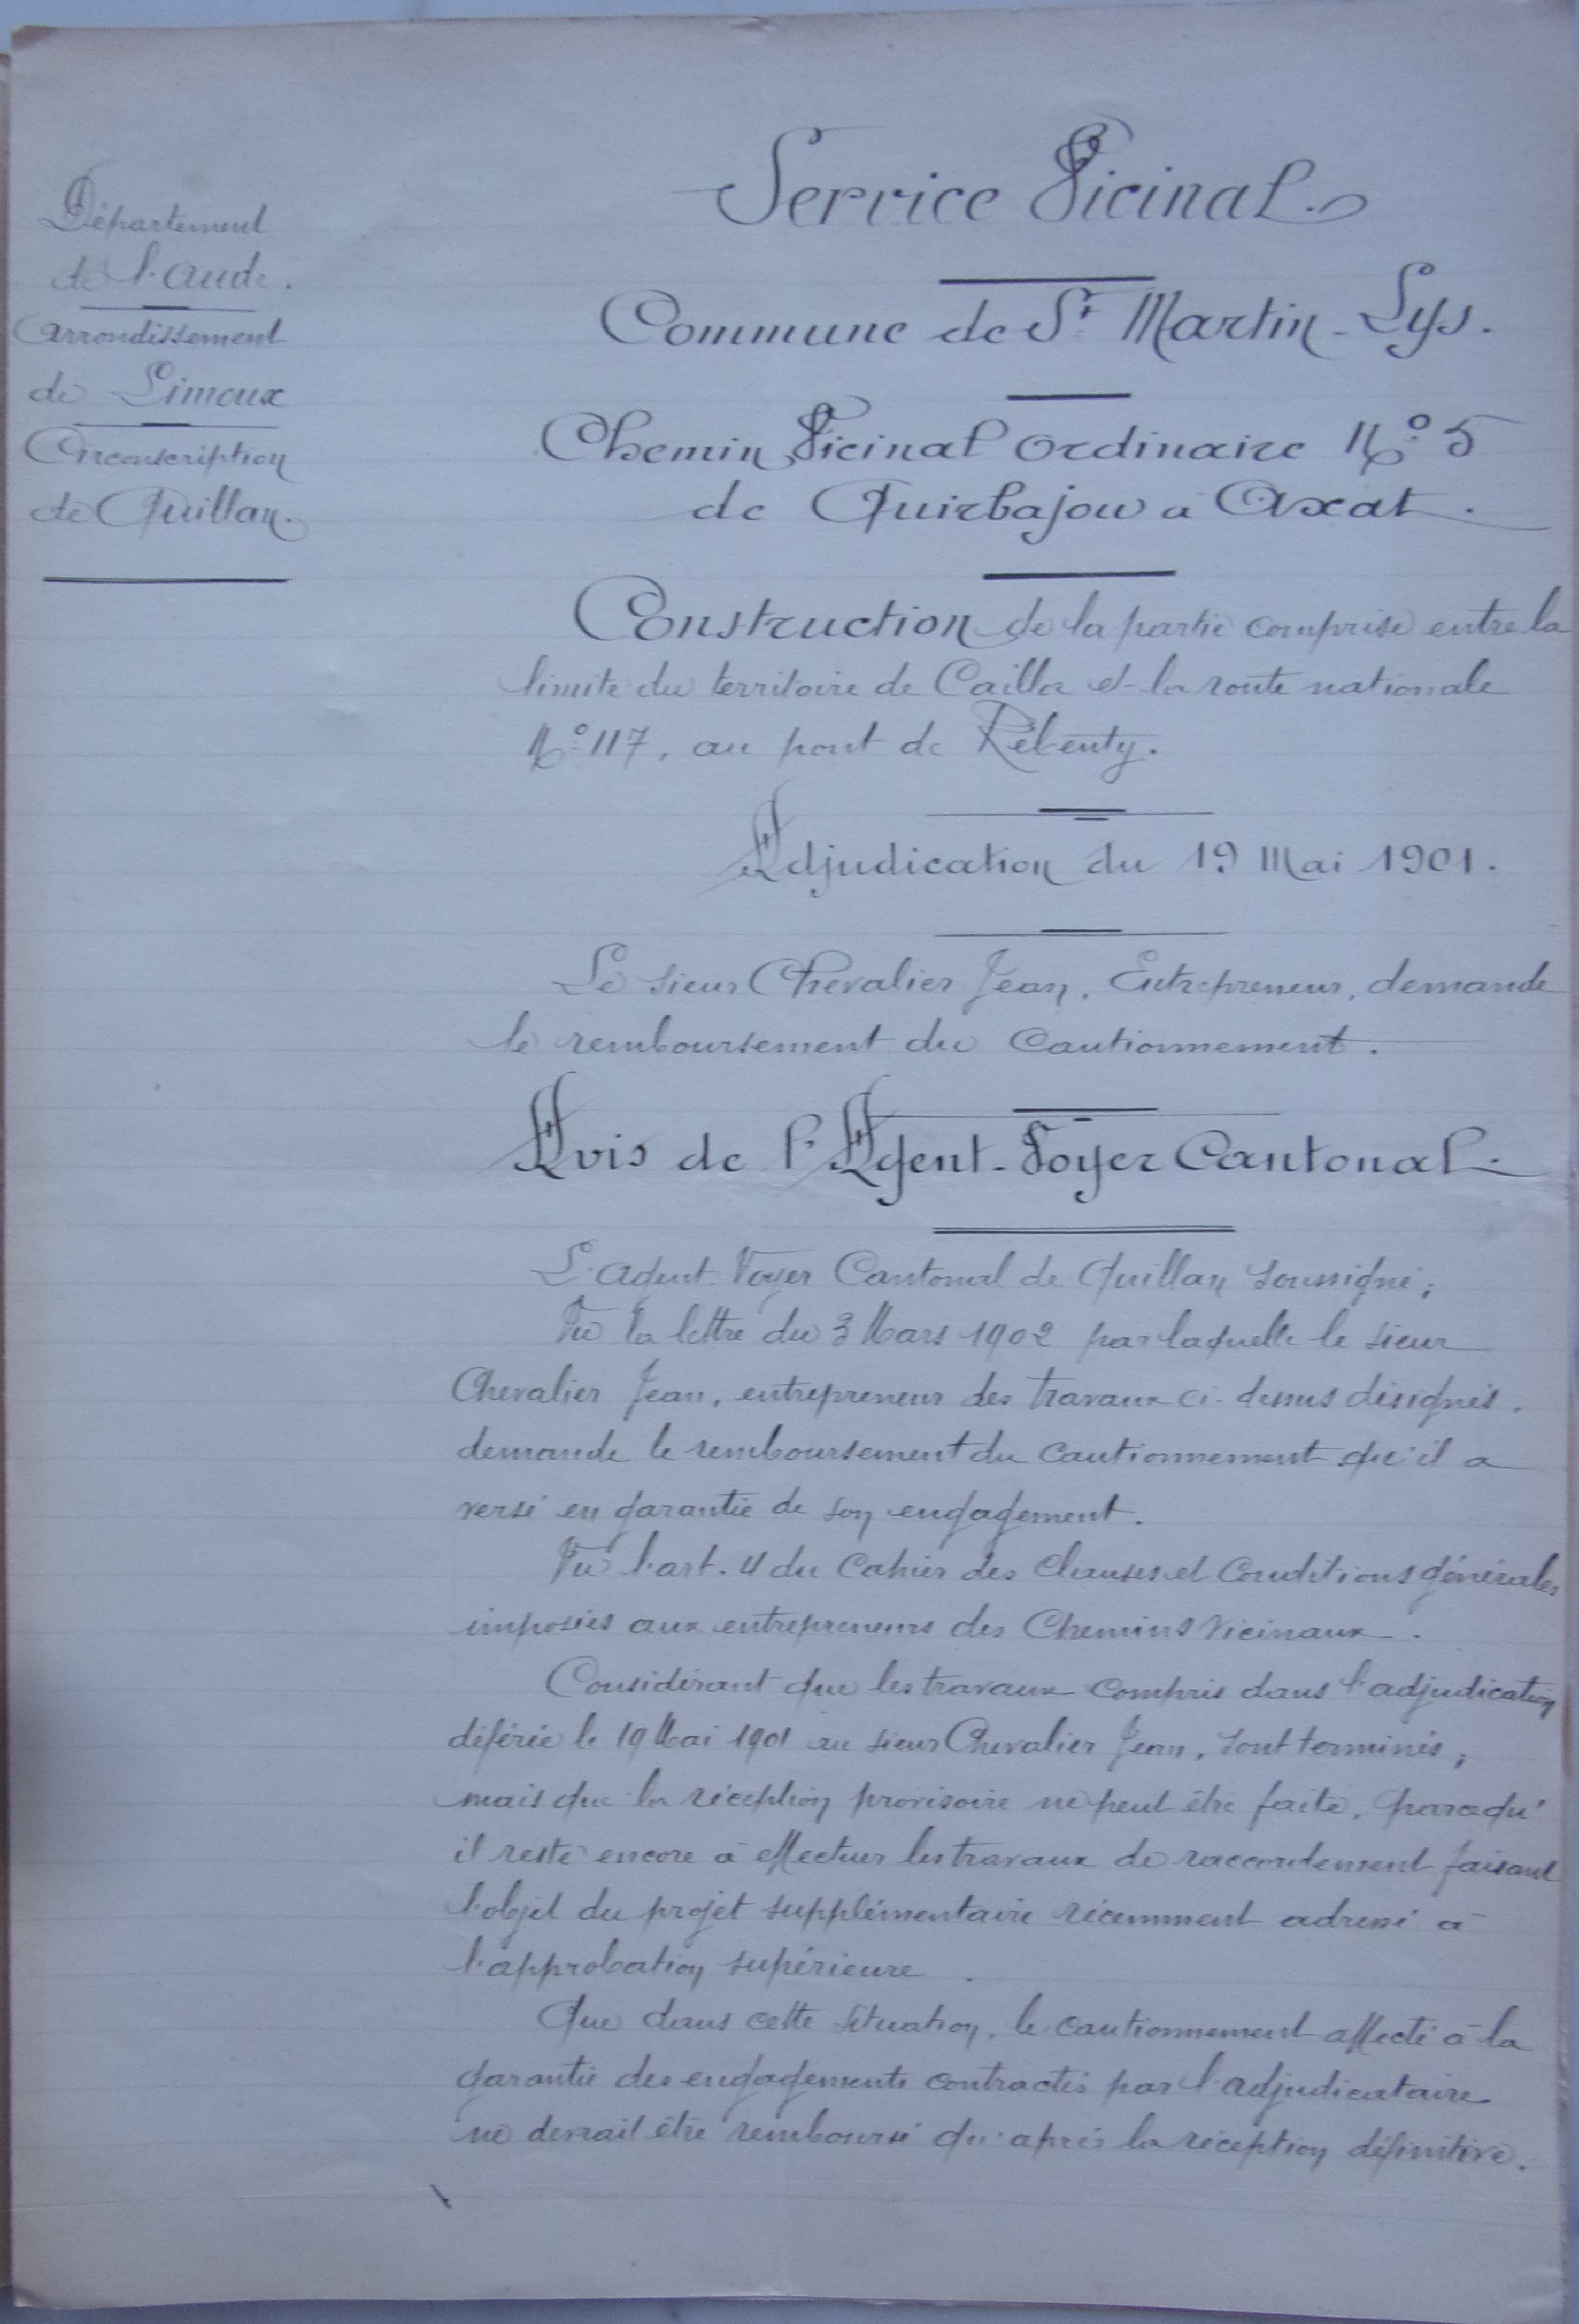 Département
de l'Aude.
Arrondissement
de Limoux
Circonscription
de Quillan.
Service Vicinal.
Commune de St Martin-Lys.
Chemin Vicinal Ordinaire No 5
de Quirbajou à Axat.
Construction de la partie comprise entre la
limite du territoire de Cailla et la route nationale
No 117, au pont de Rébenty.
Adjudication du 19 Mai 1901.
Le sieur Chevalier Jean, Entrepreneur, demande
le remboursement du Cautionnement.
Avis de l'Agent-Voyer Cantonal.
L'Agent-Voyer Cantonal de Quillan soussigné;
Vu la lettre du 3 Mars 1902 par laquelle le sieur
Chevalier Jean, entrepreneur des travaux ci-dessus désignés,
demande le remboursement du cautionnement qu'il a
versé en garantie de son engagement.
Vu l'art. 4 du Cahier des Clauses et Conditions générales
imposées aux entrepreneurs des Chemins Vicinaux.
Considérant que les travaux compris dans l'adjudication
déférée le 19 Mai 1901 au sieur Chevalier Jean, sont terminés,
mais que la réception provisoire ne peut être faite, parcequ'
il reste encore à effectuer les travaux de raccordement faisant
l'objet du projet supplémentaire récemment adressé à
l'approbation supérieure.
Que dans cette situation, le cautionnement affecté à la
garantie des engagements contractés par l'adjudicataire
ne devrait être remboursé qu'après la réception définitive.